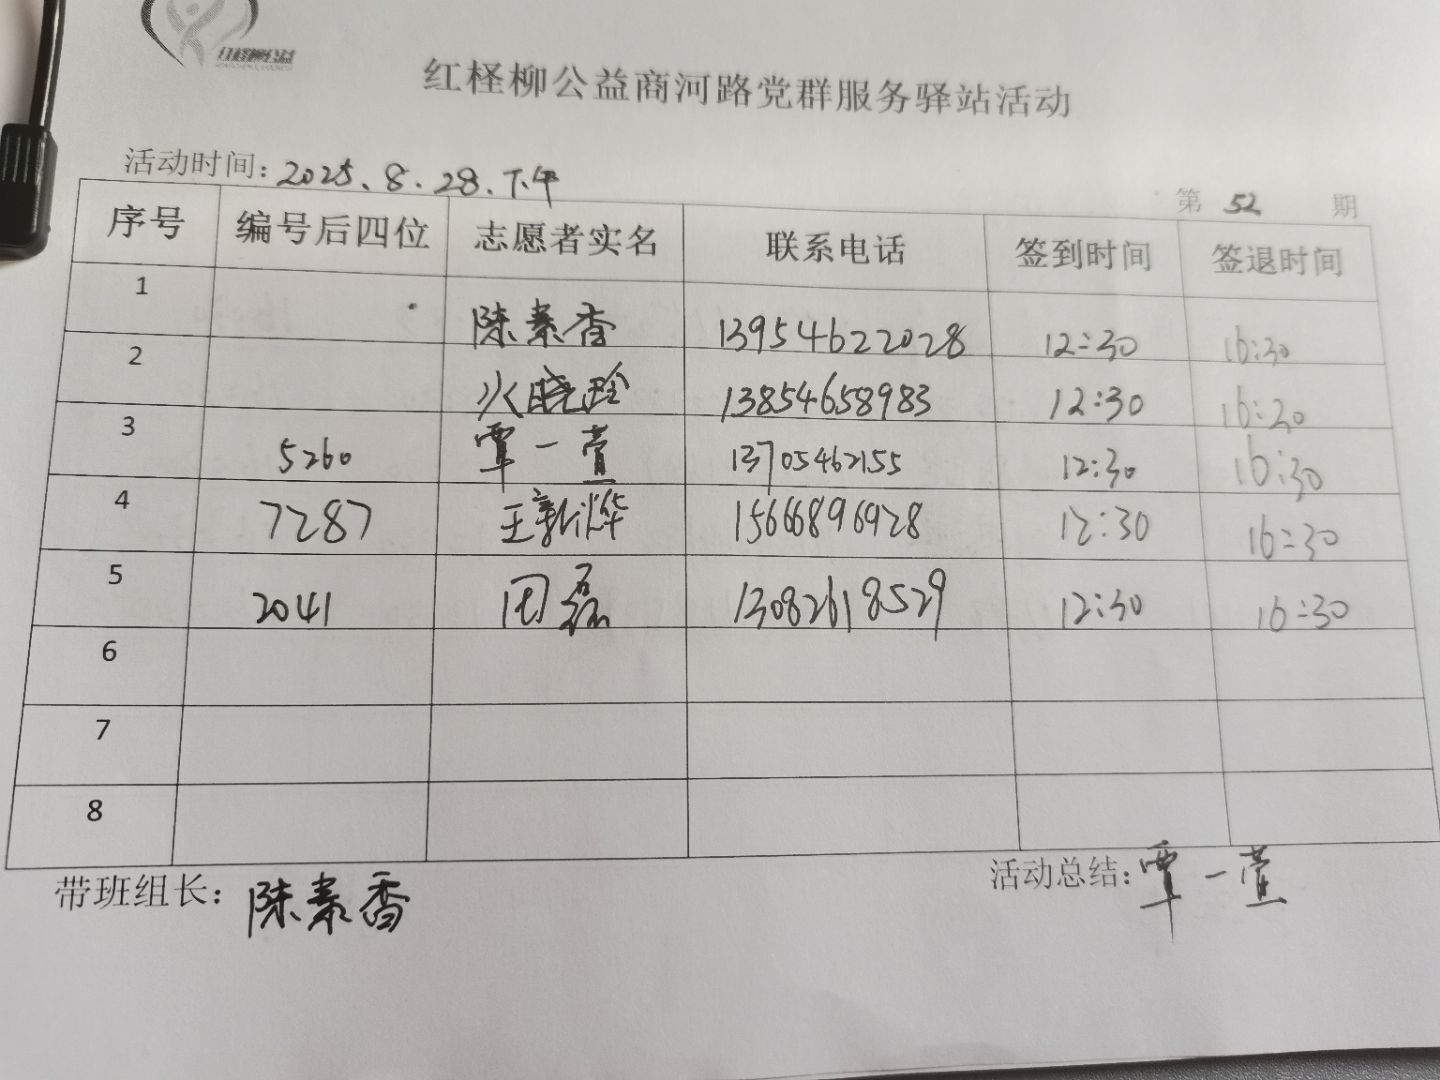 红柽柳公益
红柽柳公益商河路党群服务驿站活动
活动时间：2025.8.28.下午
第 52 期
序号 编号后四位 志愿者实名 联系电话 签到时间 签退时间
1 陈素香 13954622028 12:30 16:30
2 晓玲 13854658983 12:30 16:30
3 5260 覃一萱 13705462155 12:30 16:30
4 7287 王新烨 15666896928 12:30 16:30
5 2041 田磊 13082618529 12:30 16:30
6
7
8
带班组长：陈素香
活动总结：覃一萱